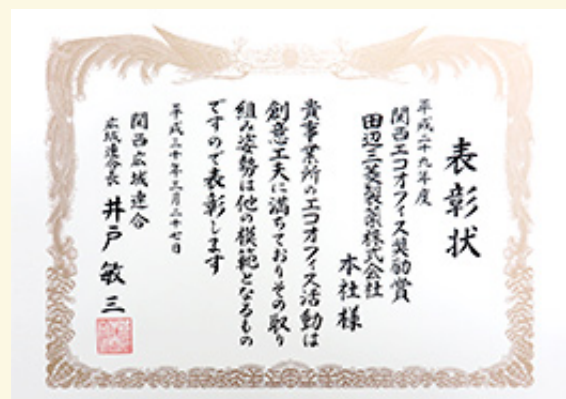 表彰状
平成二十九年度
関西エコオフィス奨励賞
田辺三菱製薬株式会社
本社様
貴事業所のエコオフィス活動は
創意工夫に満ちておりその取り
組み姿勢は他の模範となるもの
ですので表彰します
平成三十年三月二十七日
関西広域連合
広域連合長 井戸敏三